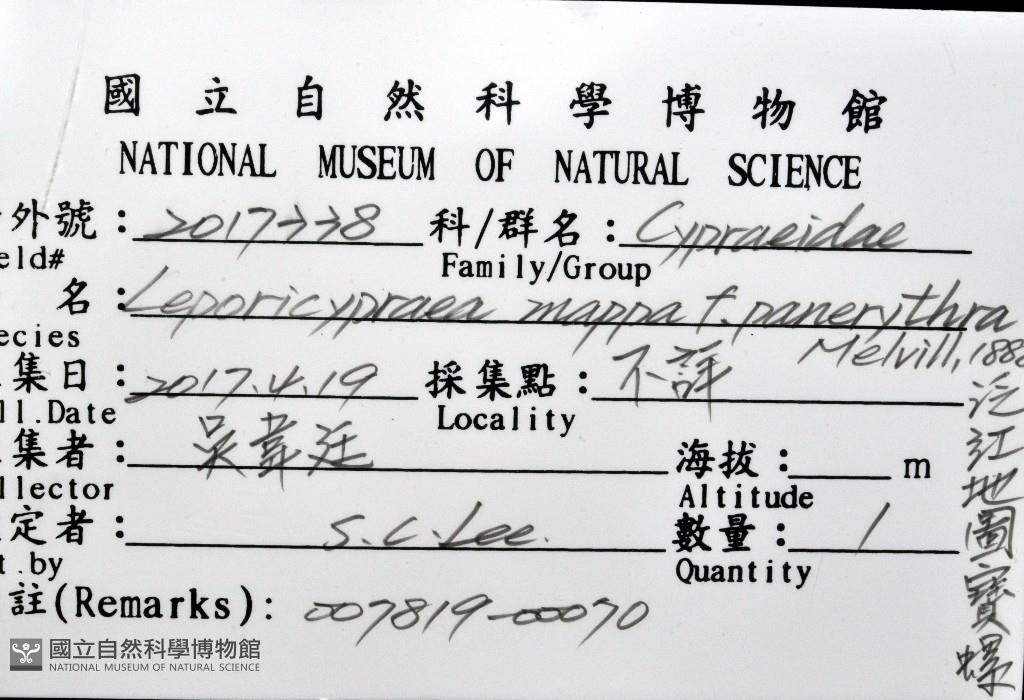 國立自然科學博物館
NATIONAL MUSEUM OF NATURAL SCIENCE
外號: 科/群名: Cypraeidae
eld# Family/Group
名: Leporicypraea mappa f. panerythra
ecies Melvill, 188
集日: 2017.4.19 採集點: 不詳
ll.Date Locality
集者: 吳韋廷 海拔: m
llector Altitude
定者: S.C.Lee. 數量: 1
t.by Quantity
註(Remarks): 007819-00070
泛紅地圖寶螺
國立自然科學博物館
NATIONAL MUSEUM OF NATURAL SCIENCE